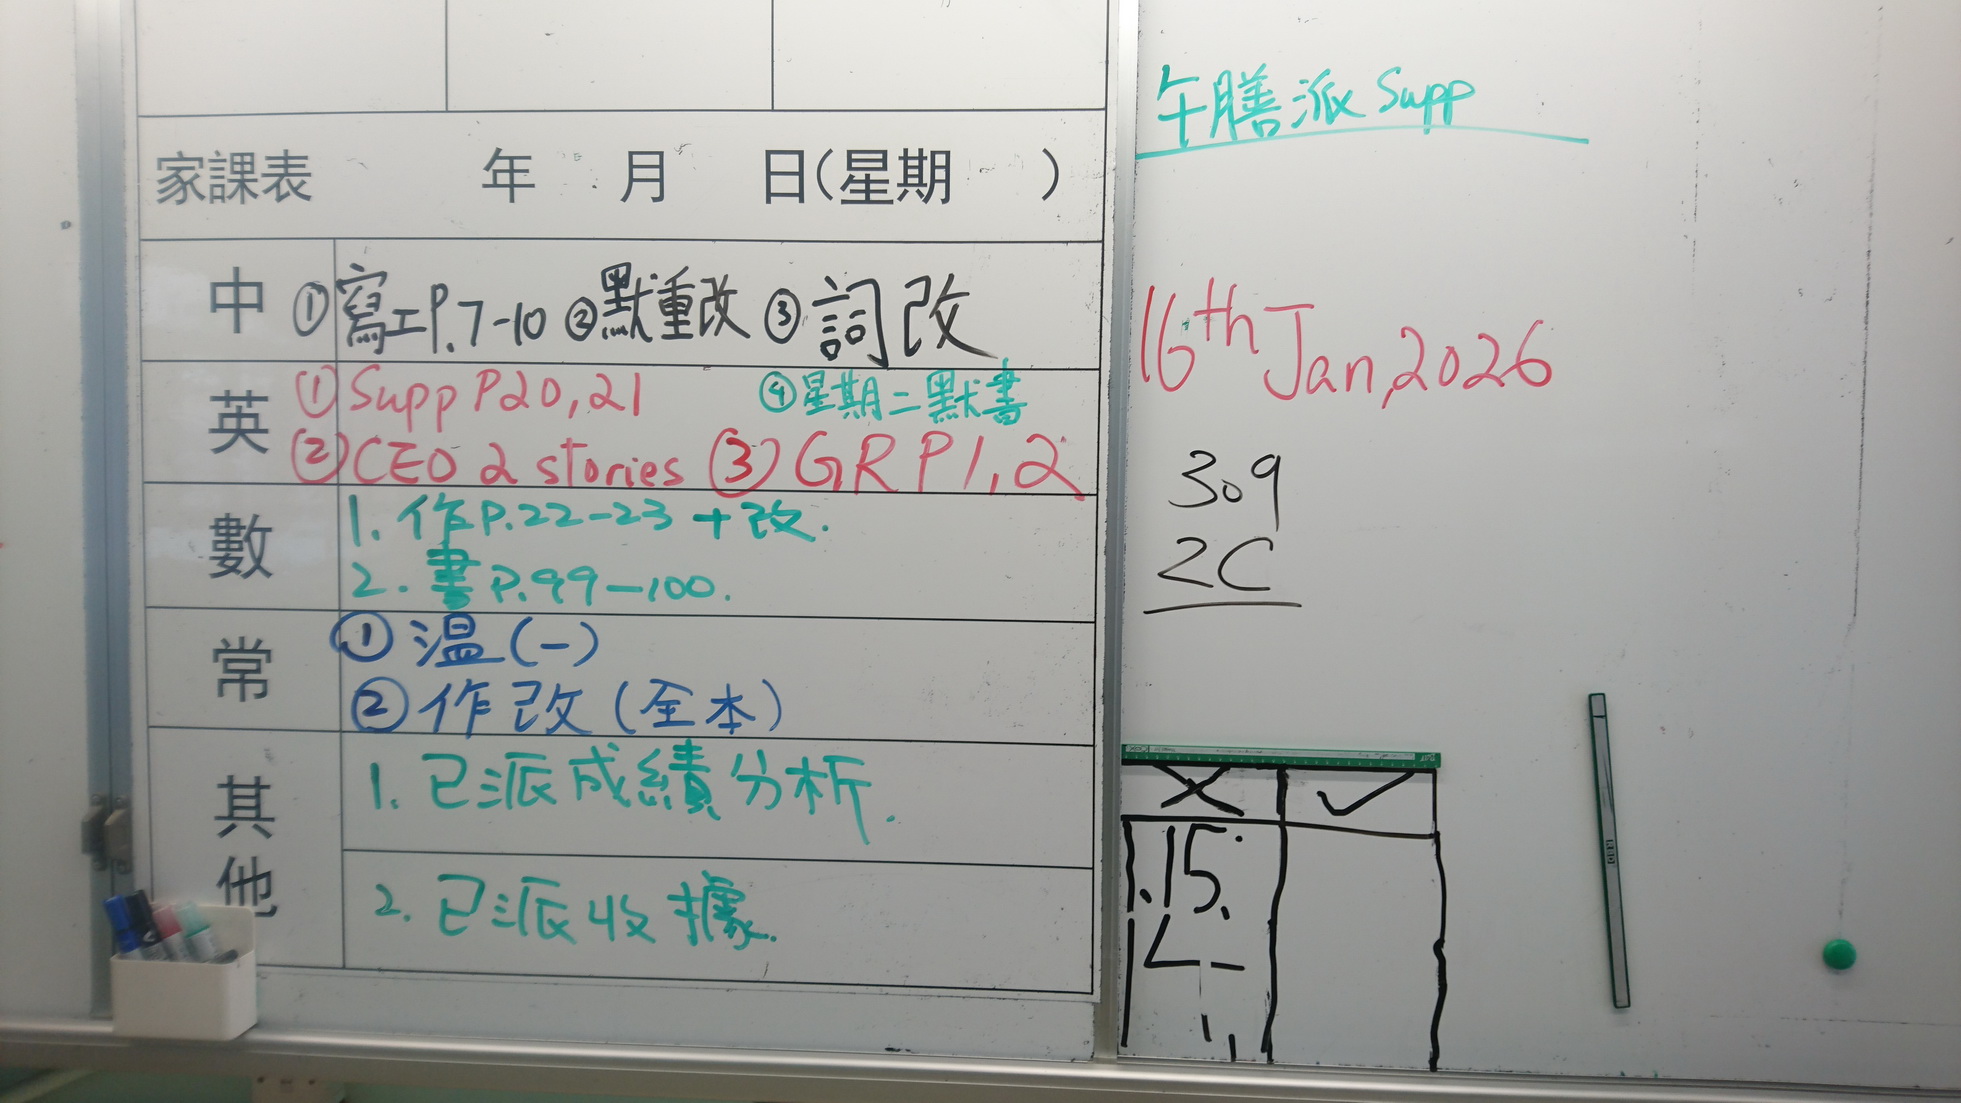 家課表 年 月 日(星期 )
中 ①寫工P.7-10 ②默重改 ③詞改
英 ①Supp P20,21 ④星期二默書
②CEO 2 stories ③GRP1,2
數 1. 作P.22-23 + 改.
2. 書P.99-100.
常 ①溫(一)
②作改(全本)
其他 1. 已派成績分析.
2. 已派收據.
午膳派Supp
16th Jan,2026
309
2C
X ✓
15.